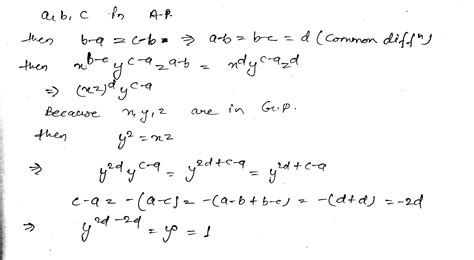 a, b, c in A.P.
then b-a = c-b ⇒ a-b = b-c = d (common diffⁿ)
then x^{b-c} y^{c-a} z^{a-b} = x^d y^{c-a} z^d
⇒ (xz)^d y^{c-a}
Because x, y, z are in G.P.
then y² = xz
⇒ y^{2d} y^{c-a} = y^{2d+c-a} = y^{2d+c-a}
c-a = -(a-c) = -(a-b+b-c) = -(d+d) = -2d
⇒ y^{2d-2d} = y⁰ = 1